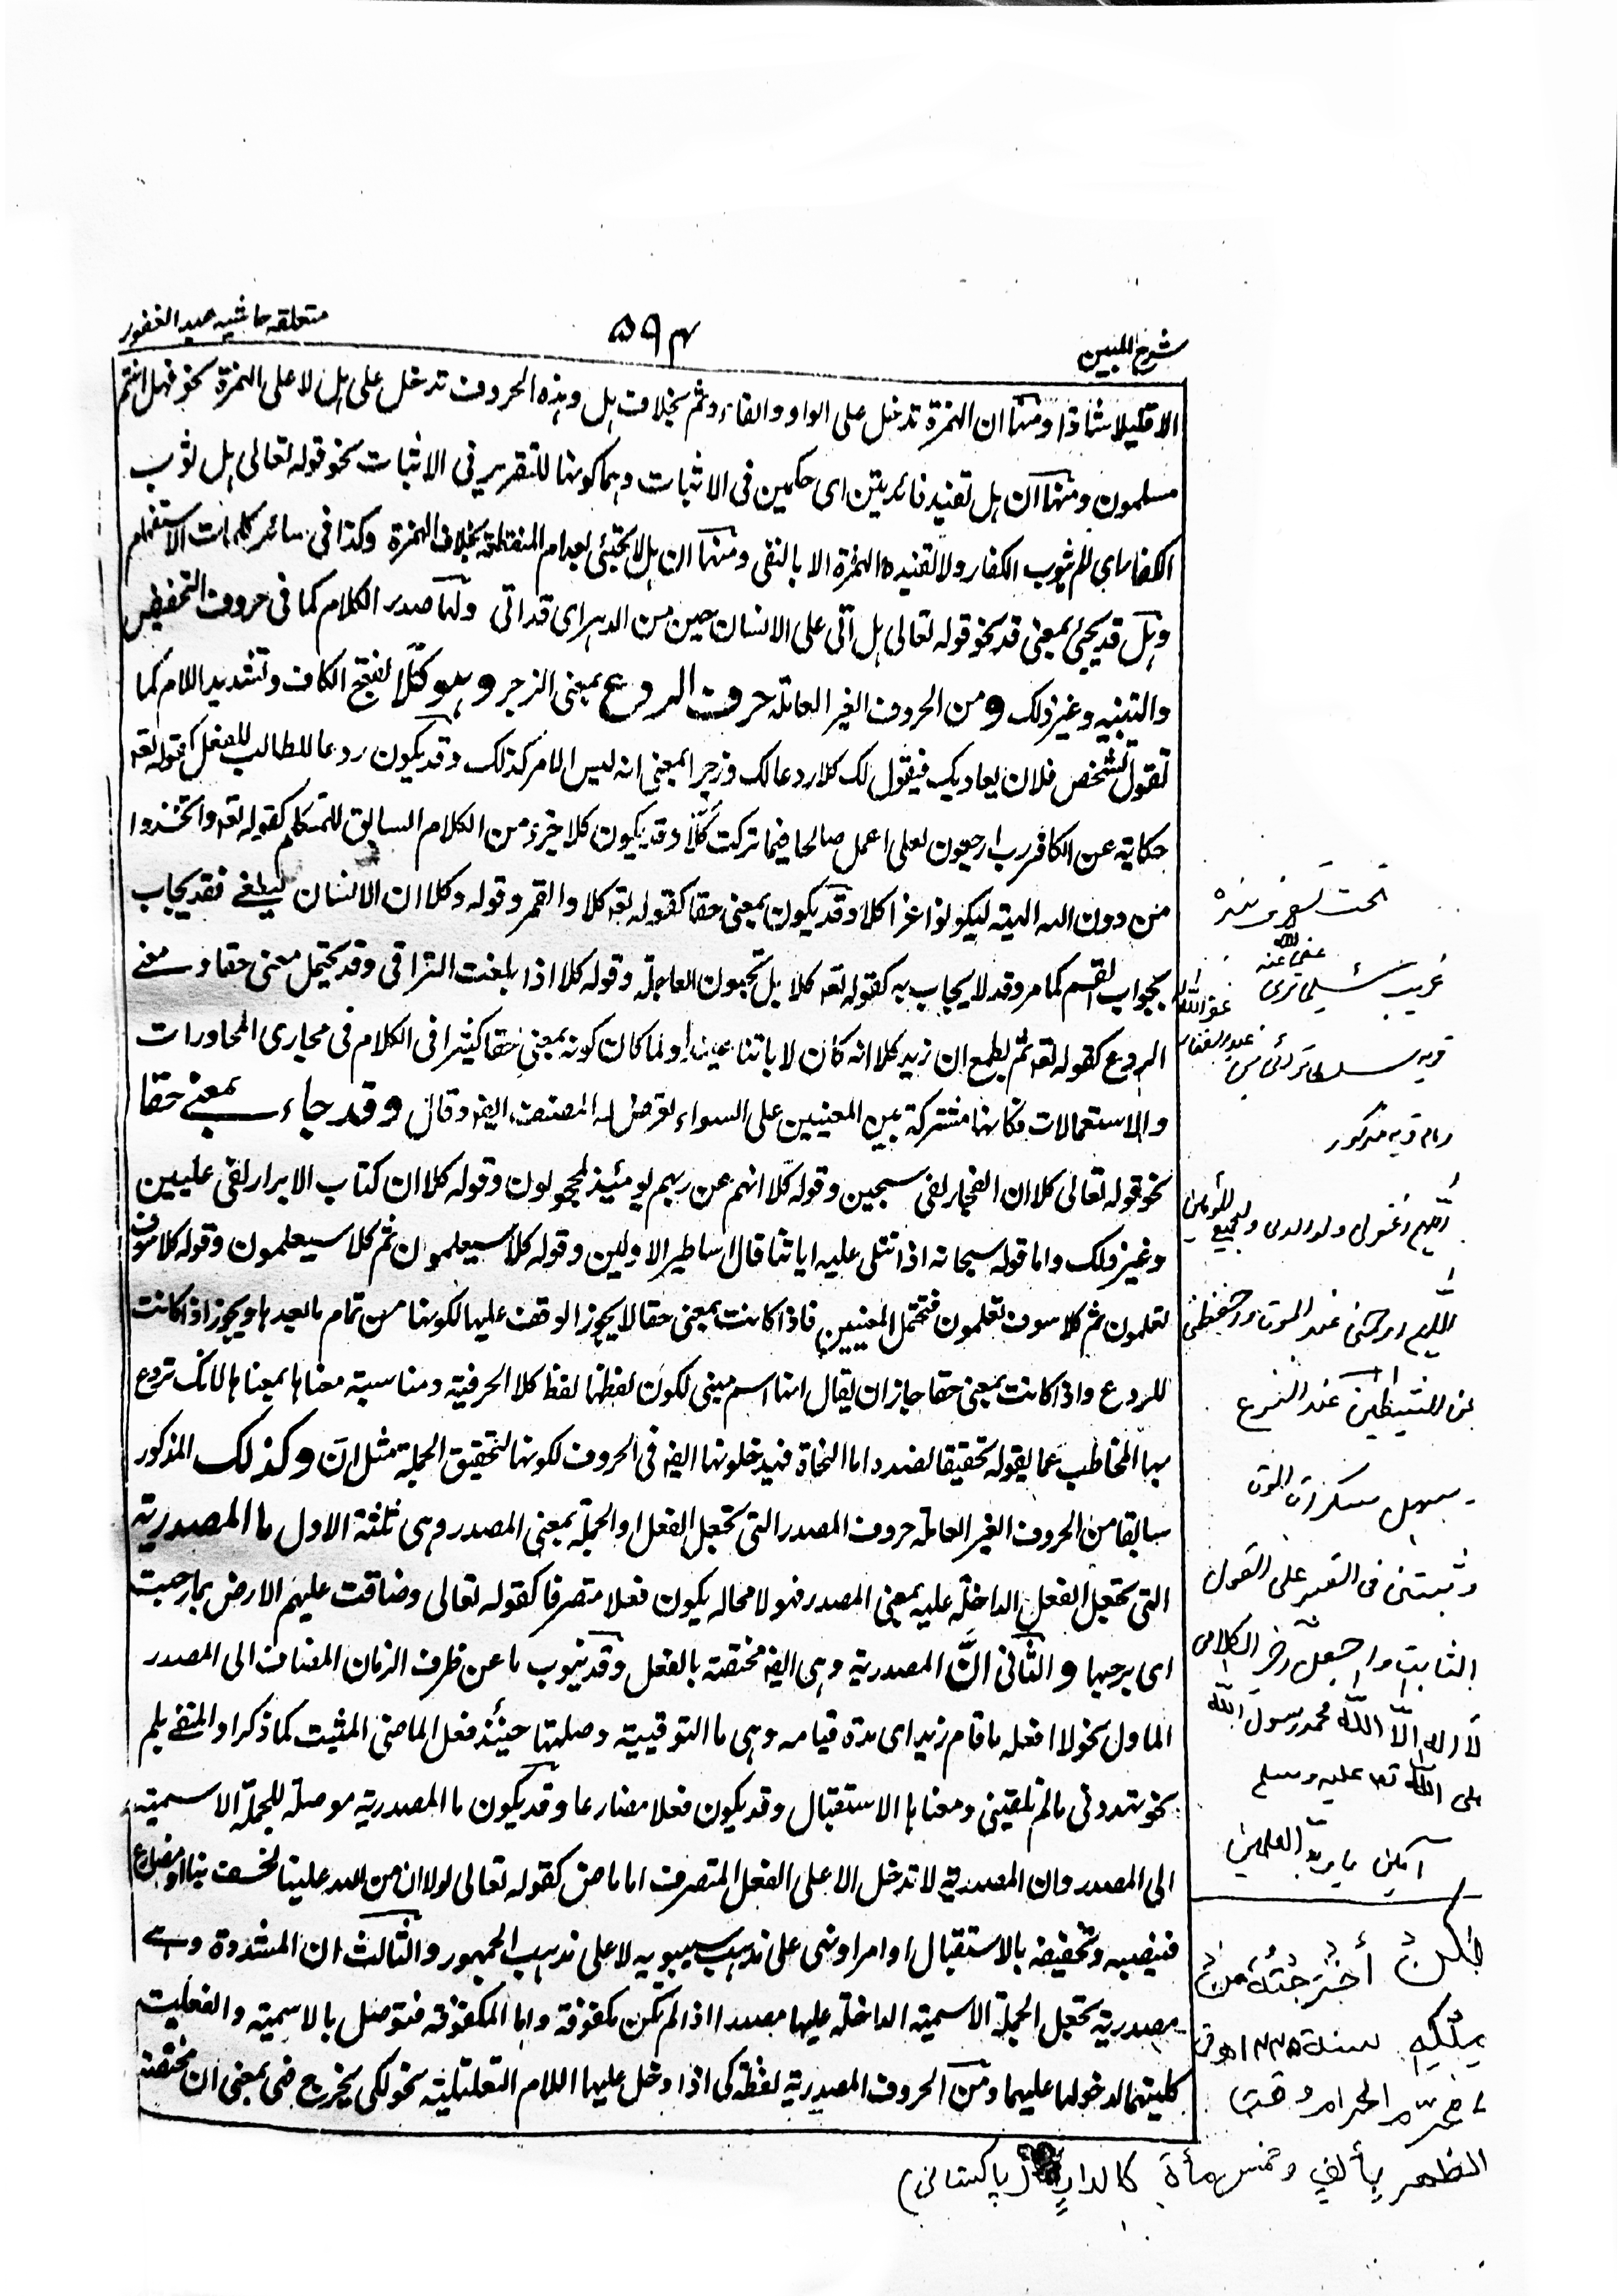 شرح المبين
۵۹۴
متعلقه حاشيه عبد الغفور
الا قليلا شاذا ومنها ان الهمزة تدخل على الواو والفاء وثم بخلاف هل وهذه الحروف تدخل على هل لا على الهمزة نحو فهل انتم
مسلمون ومنها ان هل تفيد فائدتين اى حكمين فى الاثبات وهما كونها للتقرير فى الاثبات نحو قوله تعالى هل ثوب
الكفار اى لم يثوب الكفار ولا تفيده الهمزة الا بالنفى ومنها ان هل لا تجيئ بعد ام المنقطعة بخلاف الهمزة وكذا فى سائر كلمات الاستفهام
وهل قد يجيئ بمعنى قد نحو قوله تعالى هل اتى على الانسان حين من الدهر اى قد اتى ولها صدر الكلام كما فى حروف التحضيض
والتنبيه وغير ذلك ومن الحروف الغير العاملة حروف الردع بمعنى الزجر وهو كلّا بفتح الكاف وتشديد اللام كما
تقول لشخص فلان يعاديك فيقول لك كلا ردعا لك وزجرا بمعنى انه ليس الامر كذلك وقد يكون ردعا للطالب للفعل كقوله تعه
حكاية عن الكافر رب ارجعون لعلى اعمل صالحا فيما تركت كلّا وقد يكون كلا جزء من الكلام السابق للمتكلم كقوله تعه واتخذوا
من دون الله الهة ليكونوا عزا كلا وقد يكون بمعنى حقا كقوله تعه كلا والقمر وقوله وكلا ان الانسان ليطغى فقد يجاب
بجواب القسم كما مر وقد لا يجاب به كقوله تعه كلا بل تحبون العاجلة وقوله كلا اذا بلغت التراقى وقد يحتمل معنى حقا ومعنى
الردع كقوله تعه ثم يطمع ان زيد كلا انه كان لاياتنا عنيدا ولما كان كونه بمعنى حقا كثيرا فى الكلام فى مجارى المحاورات
والاستعمالات فكانها مشتركة بين المعنيين على السواء تعرض له المصنف ايضه وقال وقد جاء بمعنى حقا
نحو قوله تعالى كلا ان الفجار لفى سجين وقوله كلّا انهم عن ربهم يومئذ لمحجوبون وقوله كلا ان كتاب الابرار لفى عليين
وغير ذلك واما قوله سبحانه اذا تتلى عليه اياتنا قال اساطير الاولين وقوله كلا سيعلمون ثم كلا سيعلمون وقوله كلا سوف
تعلمون ثم كلا سوف تعلمون فتحتمل المعنيين فاذا كانت بمعنى حقا لا يجوز الوقف عليها لكونها من تمام ما بعدها ويجوز اذا كانت
للردع واذا كانت بمعنى حقا جاز ان يقال انها اسم مبنى لكون لفظها لفظ كلا الحرفية ومناسبة معناها بمعناها لانك تردع
بها المخاطب عما يقوله تحقيقا لضده واما النحاة فيدخلونها ايضه فى الحروف لكونها لتحقيق الجملة مثل انّ وكذلك المذكور
سابقا من الحروف الغير العاملة حروف المصدر التى تجعل الفعل او الجملة بمعنى المصدر وهى ثلثة الاول ما المصدرية
التى تجعل الفعل الداخلة عليه بمعنى المصدر فهو لا محاله يكون فعلا متصرفا كقوله تعالى وضاقت عليهم الارض بما رحبت
اى برحبها والثانى انّ المصدرية وهى ايضه مختصة بالفعل وقد ينوب ما عن ظرف الزمان المضاف الى المصدر
الماول نحو لا افعله ما قام زيد اى مدة قيامه وهى ما التوقيتية وصلتها حينئذ فعل الماضى المثبت كما ذكر او المنفى بلم
نحو تهددنى ما لم تلقينى ومعناها الاستقبال وقد يكون فعلا مضارعا وقد يكون ما المصدرية موصلة للجملة الاسمية
الى المصدر وان المصدرية لا تدخل الا على الفعل المتصرف اما ماض كقوله تعالى لولا ان من الله علينا لخسف بنا او مضارع
فينصبه وتخصيصه بالاستقبال او امر او نهى على مذهب سيبويه لا على مذهب الجمهور والثالث ان المشددة وهى
مصدرية تجعل الجملة الاسمية الداخلة عليها مصدرا اذا لم تكن مكفوفة واما المكفوفة فتوصل بالاسمية والفعلية
كلتيهما لدخولها عليهما ومن الحروف المصدرية لفظة كى اذا دخل عليها اللام التعليلية نحو لكى يخرج فهى بمعنى ان مختصة
تحت
غريب
عفى عنه
عبد الغفار
غفر الله
قريه
قريه مذكور
اللهم اغفر لى ولوالدى ولجميع المؤمنين
اللهم ارحمنى عند الموت واحفظنى
من الشيطين عند النزع
سهل سكرات الموت
وثبتنى فى القبر على القول
الثابت واجعل اخر الكلامى
لا اله الا الله محمد رسول الله
صلى الله تعه عليه وسلم
آمين يا رب العلمين
لكن أخرجته من
ملكه سنة ١٣٣٥ه فى
محرّم الحرام وقت
الظهر بألف وخمس مأة كالدار (پاکستانی)